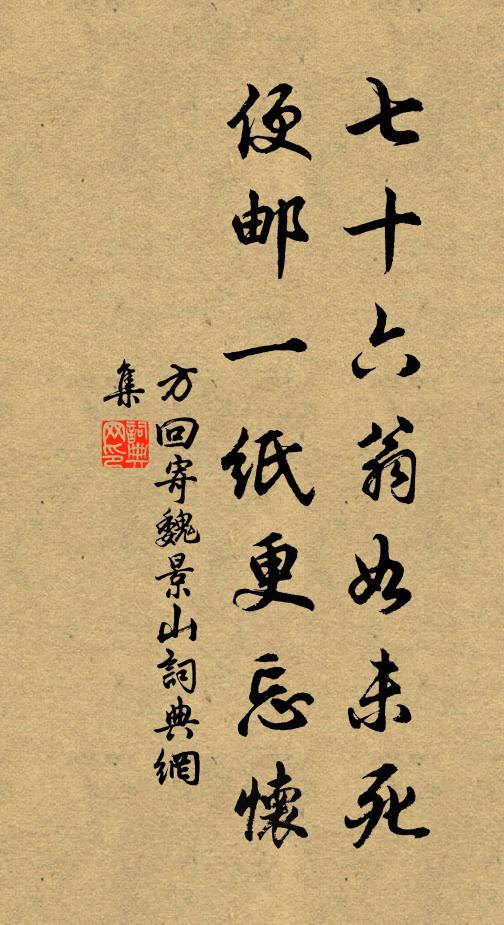 七十六翁如未死
便邮一纸更忘懷
方回寄魏景山詞典網
集
詞典网印